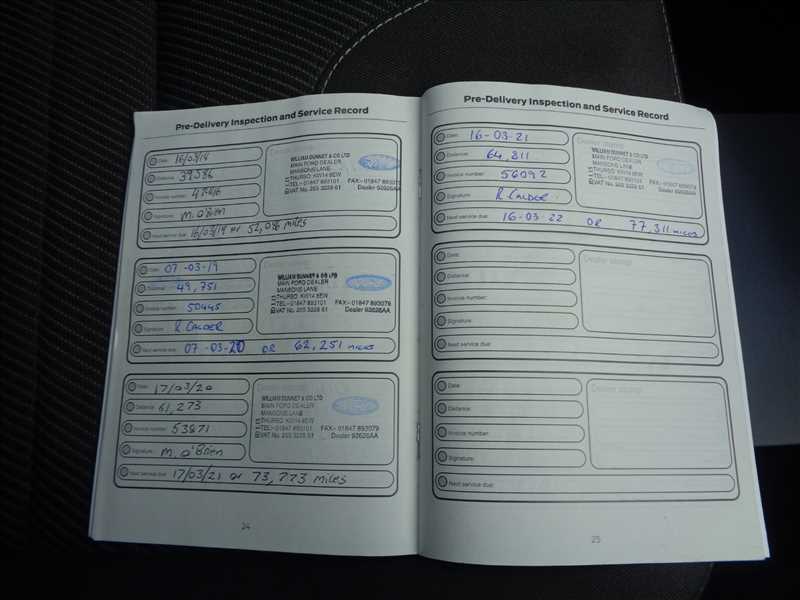 Pre-Delivery Inspection and Service Record
Date:
Distance:
Invoice number:
Signature: M. O'Brien
Next service due: or 52,086 miles
WILLIAM DUNNET & CO LTD
MAIN FORD DEALER
MANSONS LANE
THURSO. KW14 8EW
TEL:- 01847 893101 FAX:- 01847 893079
VAT No. 265 3228 61 Dealer 92626AA
Date: 07-03-19
Distance: 49,751
Invoice number: 50445
Signature: R CALDER
Next service due: 07-03-20 OR 62,251 MILES
WILLIAM DUNNET & CO LTD
MAIN FORD DEALER
MANSONS LANE
THURSO. KW14 8EW
TEL:- 01847 893101 FAX:- 01847 893079
VAT No. 265 3228 61 Dealer 92626AA
Date: 17/03/20
Distance: 61,273
Invoice number: 53871
Signature: M. O'Brien
Next service due: 17/03/21 or 73,773 miles
WILLIAM DUNNET & CO LTD
MAIN FORD DEALER
MANSONS LANE
THURSO. KW14 8EW
TEL:- 01847 893101 FAX:- 01847 893079
VAT No. 265 3228 61 Dealer 92626AA
24
Pre-Delivery Inspection and Service Record
Date: 16-03-21
Distance: 64,811
Invoice number: 56092
Signature: R CALDER
Next service due: 16-03-22 OR 77,311 MILES
WILLIAM DUNNET & CO LTD
MAIN FORD DEALER
MANSONS LANE
THURSO. KW14 8EW
TEL:- 01847 893101 FAX:- 01847 893079
VAT No. 265 3228 61 Dealer 92626AA
Date:
Distance:
Invoice number:
Signature:
Next service due:
Dealer stamp:
Date:
Distance:
Invoice number:
Signature:
Next service due:
Dealer stamp:
25